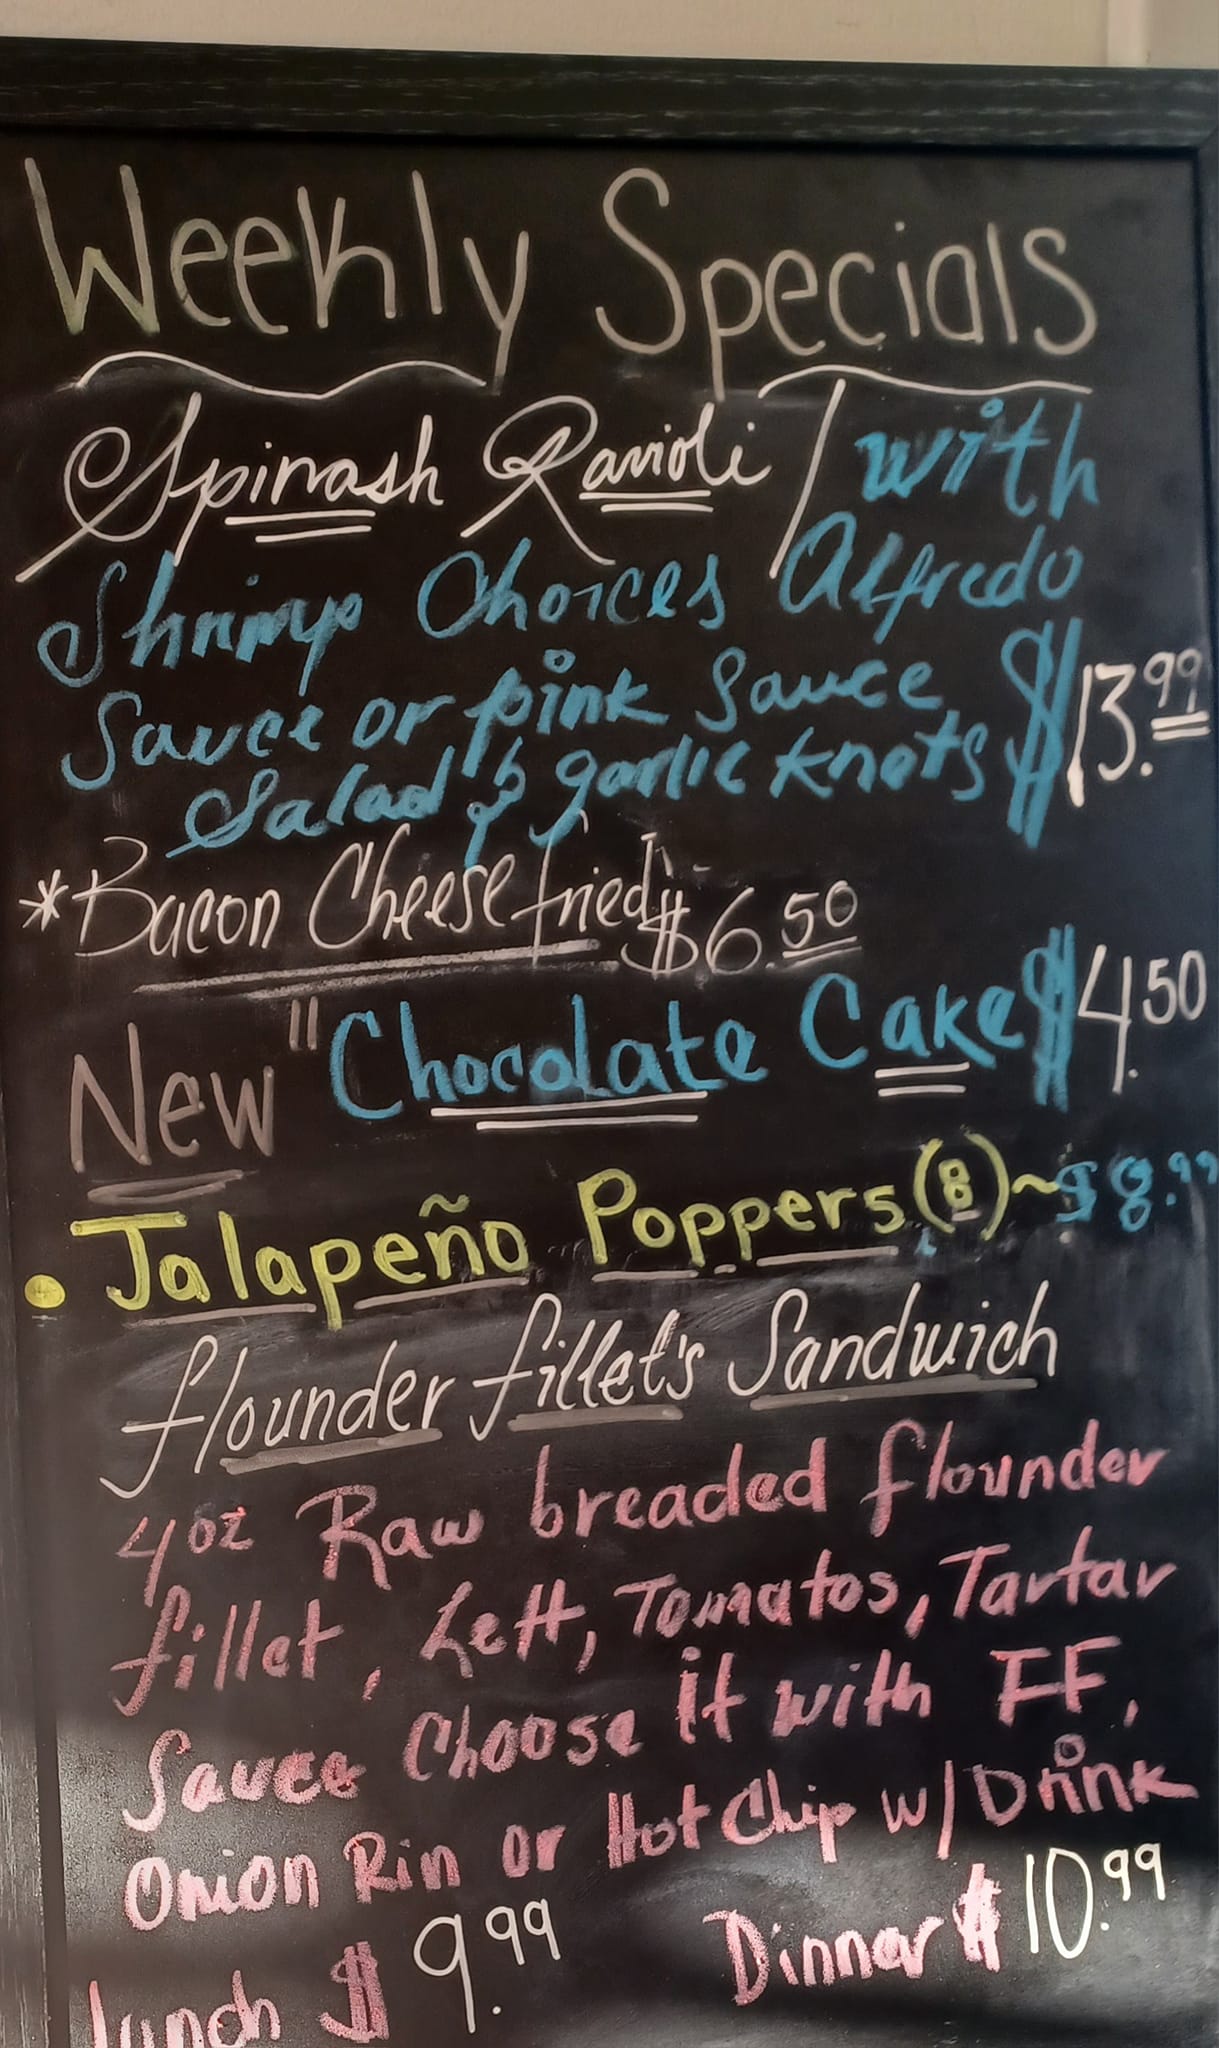 Weekly Specials
Spinash Ravioli / with
Shrimp Choices Alfredo
Sauce or pink Sauce
Salad & garlic knots $13.99
*Bacon Cheese fried $6.50
New "Chocolate Cake $4.50
• Jalapeño Poppers (8) ~ $8.99
flounder fillet's Sandwich
4oz Raw breaded flounder
fillet, Lett, Tomatos, Tartar
Sauce Choose it with FF,
Onion Rin or Hot Chip w/Drink
Lunch $9.99 Dinnar $10.99